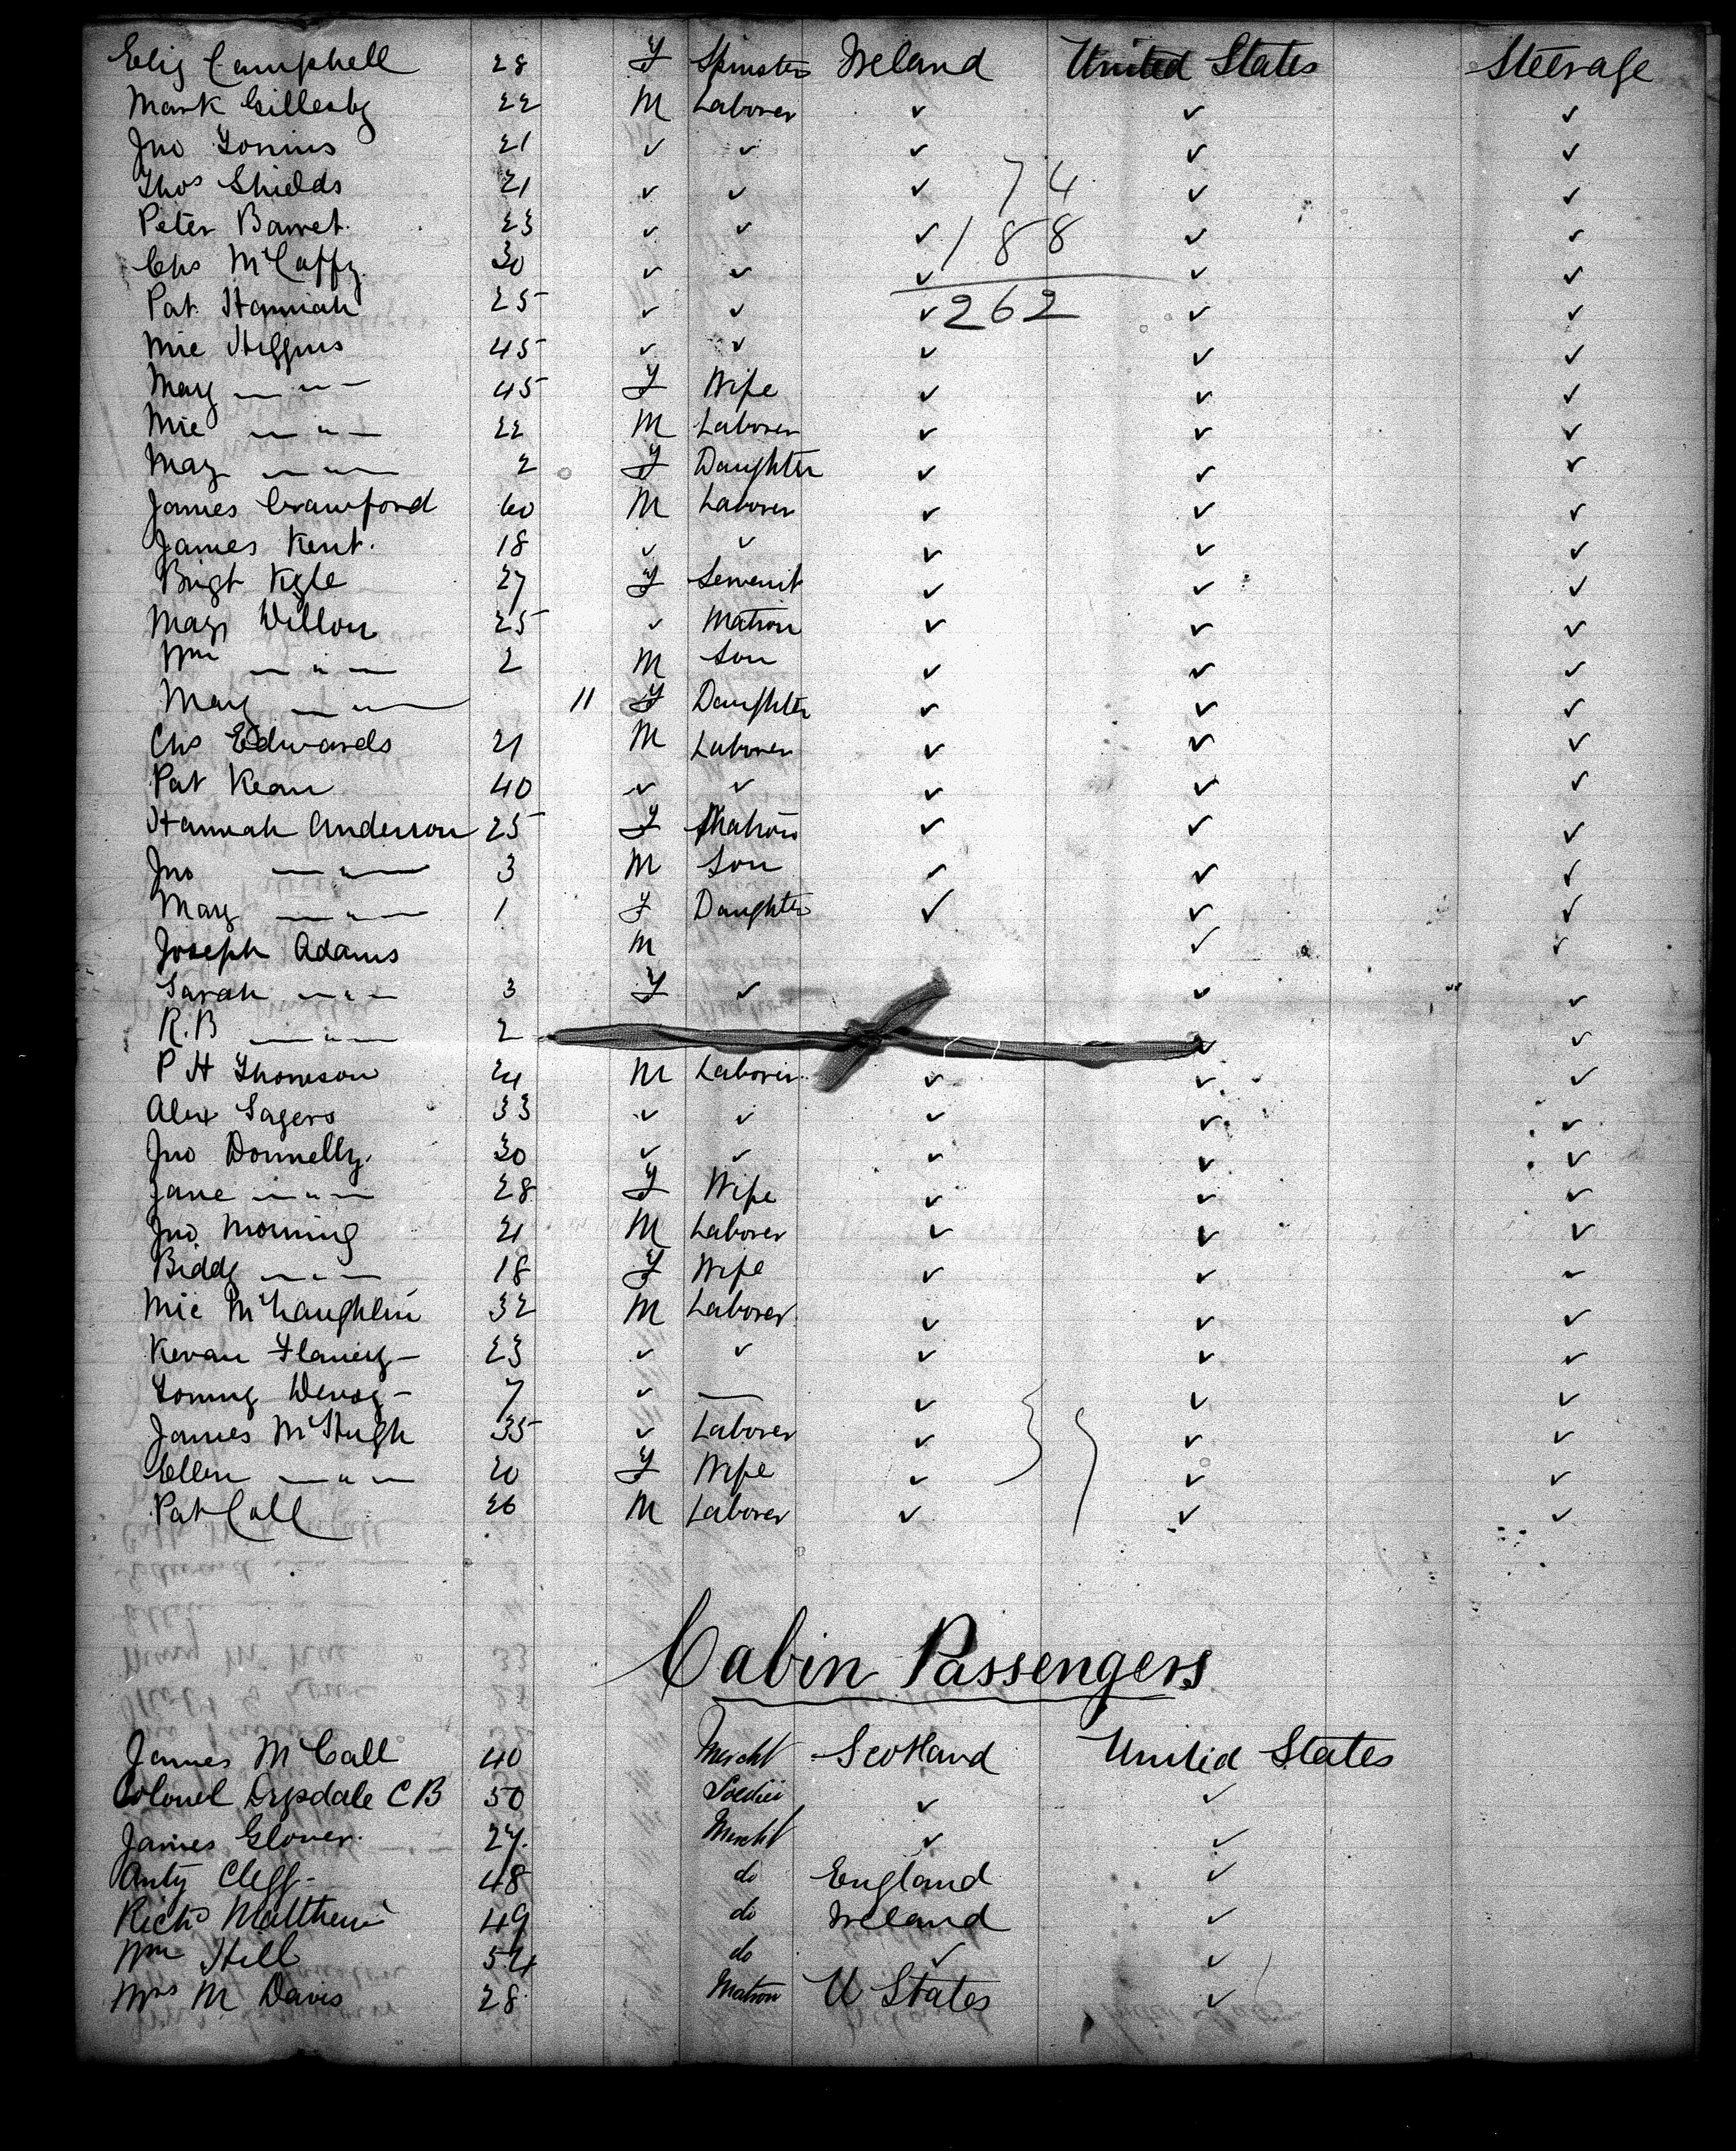 Eliz Campbell 28 F Spinster Ireland United States Steerage
Mark Gillesby 22 M Laborer ✓ ✓ ✓
Jno 21 ✓ ✓ ✓ ✓ ✓
Thos Shields 21 ✓ ✓ ✓ 74 ✓ ✓
Peter Barret 23 ✓ ✓ ✓ 188 ✓ ✓
Chs McCaffy 30 ✓ ✓ ✓ ✓ ✓
Pat Hannah 25 ✓ ✓ ✓ 262 ✓ ✓
Mic Higgins 45 ✓ ✓ ✓ ✓ ✓
Mary — " — 45 F Wife ✓ ✓ ✓
Mic — " — 22 M Laborer ✓ ✓ ✓
Mary — " — 2 F Daughter ✓ ✓ ✓
James Crawford 60 M Laborer ✓ ✓ ✓
James Kent. 18 ✓ ✓ ✓ ✓ ✓
Brigt Kyle 27 F Servent ✓ ✓ ✓
Mary Dillon 25 ✓ Matron ✓ ✓ ✓
Wm — " — 2 M Son ✓ ✓ ✓
Mary — " — 11 F Daughter ✓ ✓ ✓
Chs Edwards 21 M Laborer ✓ ✓ ✓
Pat Kean 40 ✓ ✓ ✓ ✓ ✓
Hannah Anderson 25 F Matron ✓ ✓ ✓
Jno — " — 3 M Son ✓ ✓ ✓
Mary — " — 1 F Daughter ✓ ✓ ✓
Joseph Adams M ✓ ✓
Sarah — " — 3 F ✓ ✓ ✓
R.B — " — 2 ✓ ✓
P H Thomson 24 M Laborer ✓ ✓ ✓
Alex Sagers 33 ✓ ✓ ✓ ✓ ✓
Jno Donnelly. 30 ✓ ✓ ✓ ✓ ✓
Jane — " — 28 F Wife ✓ ✓ ✓
Jno Morning 21 M Laborer ✓ ✓ ✓
Biddy — " — 18 F Wife ✓ ✓ ✓
Mic McLaughlin 32 M Laborer ✓ ✓ ✓
Kevan Flanery — 23 ✓ ✓ ✓ ✓ ✓
Tommy Devoy — 7 ✓ — ✓ ✓ ✓
James McHugh 35 ✓ Laborer ✓ ✓ ✓
Ellen — " — 20 F Wife ✓ ✓ ✓
Pat Call 26 M Laborer ✓ ✓ ✓
Cabin Passengers
James McCall 40 Mercht Scotland United States
Colonel Drysdale CB 50 Soldier ✓ ✓
James Glover. 27. Mercht ✓ ✓
Anty Clegg - 48 do England ✓
Richd Matthew 49 do Ireland ✓
Wm Hill 54 do ✓ ✓
Mrs M Davis 28 Matron U States ✓